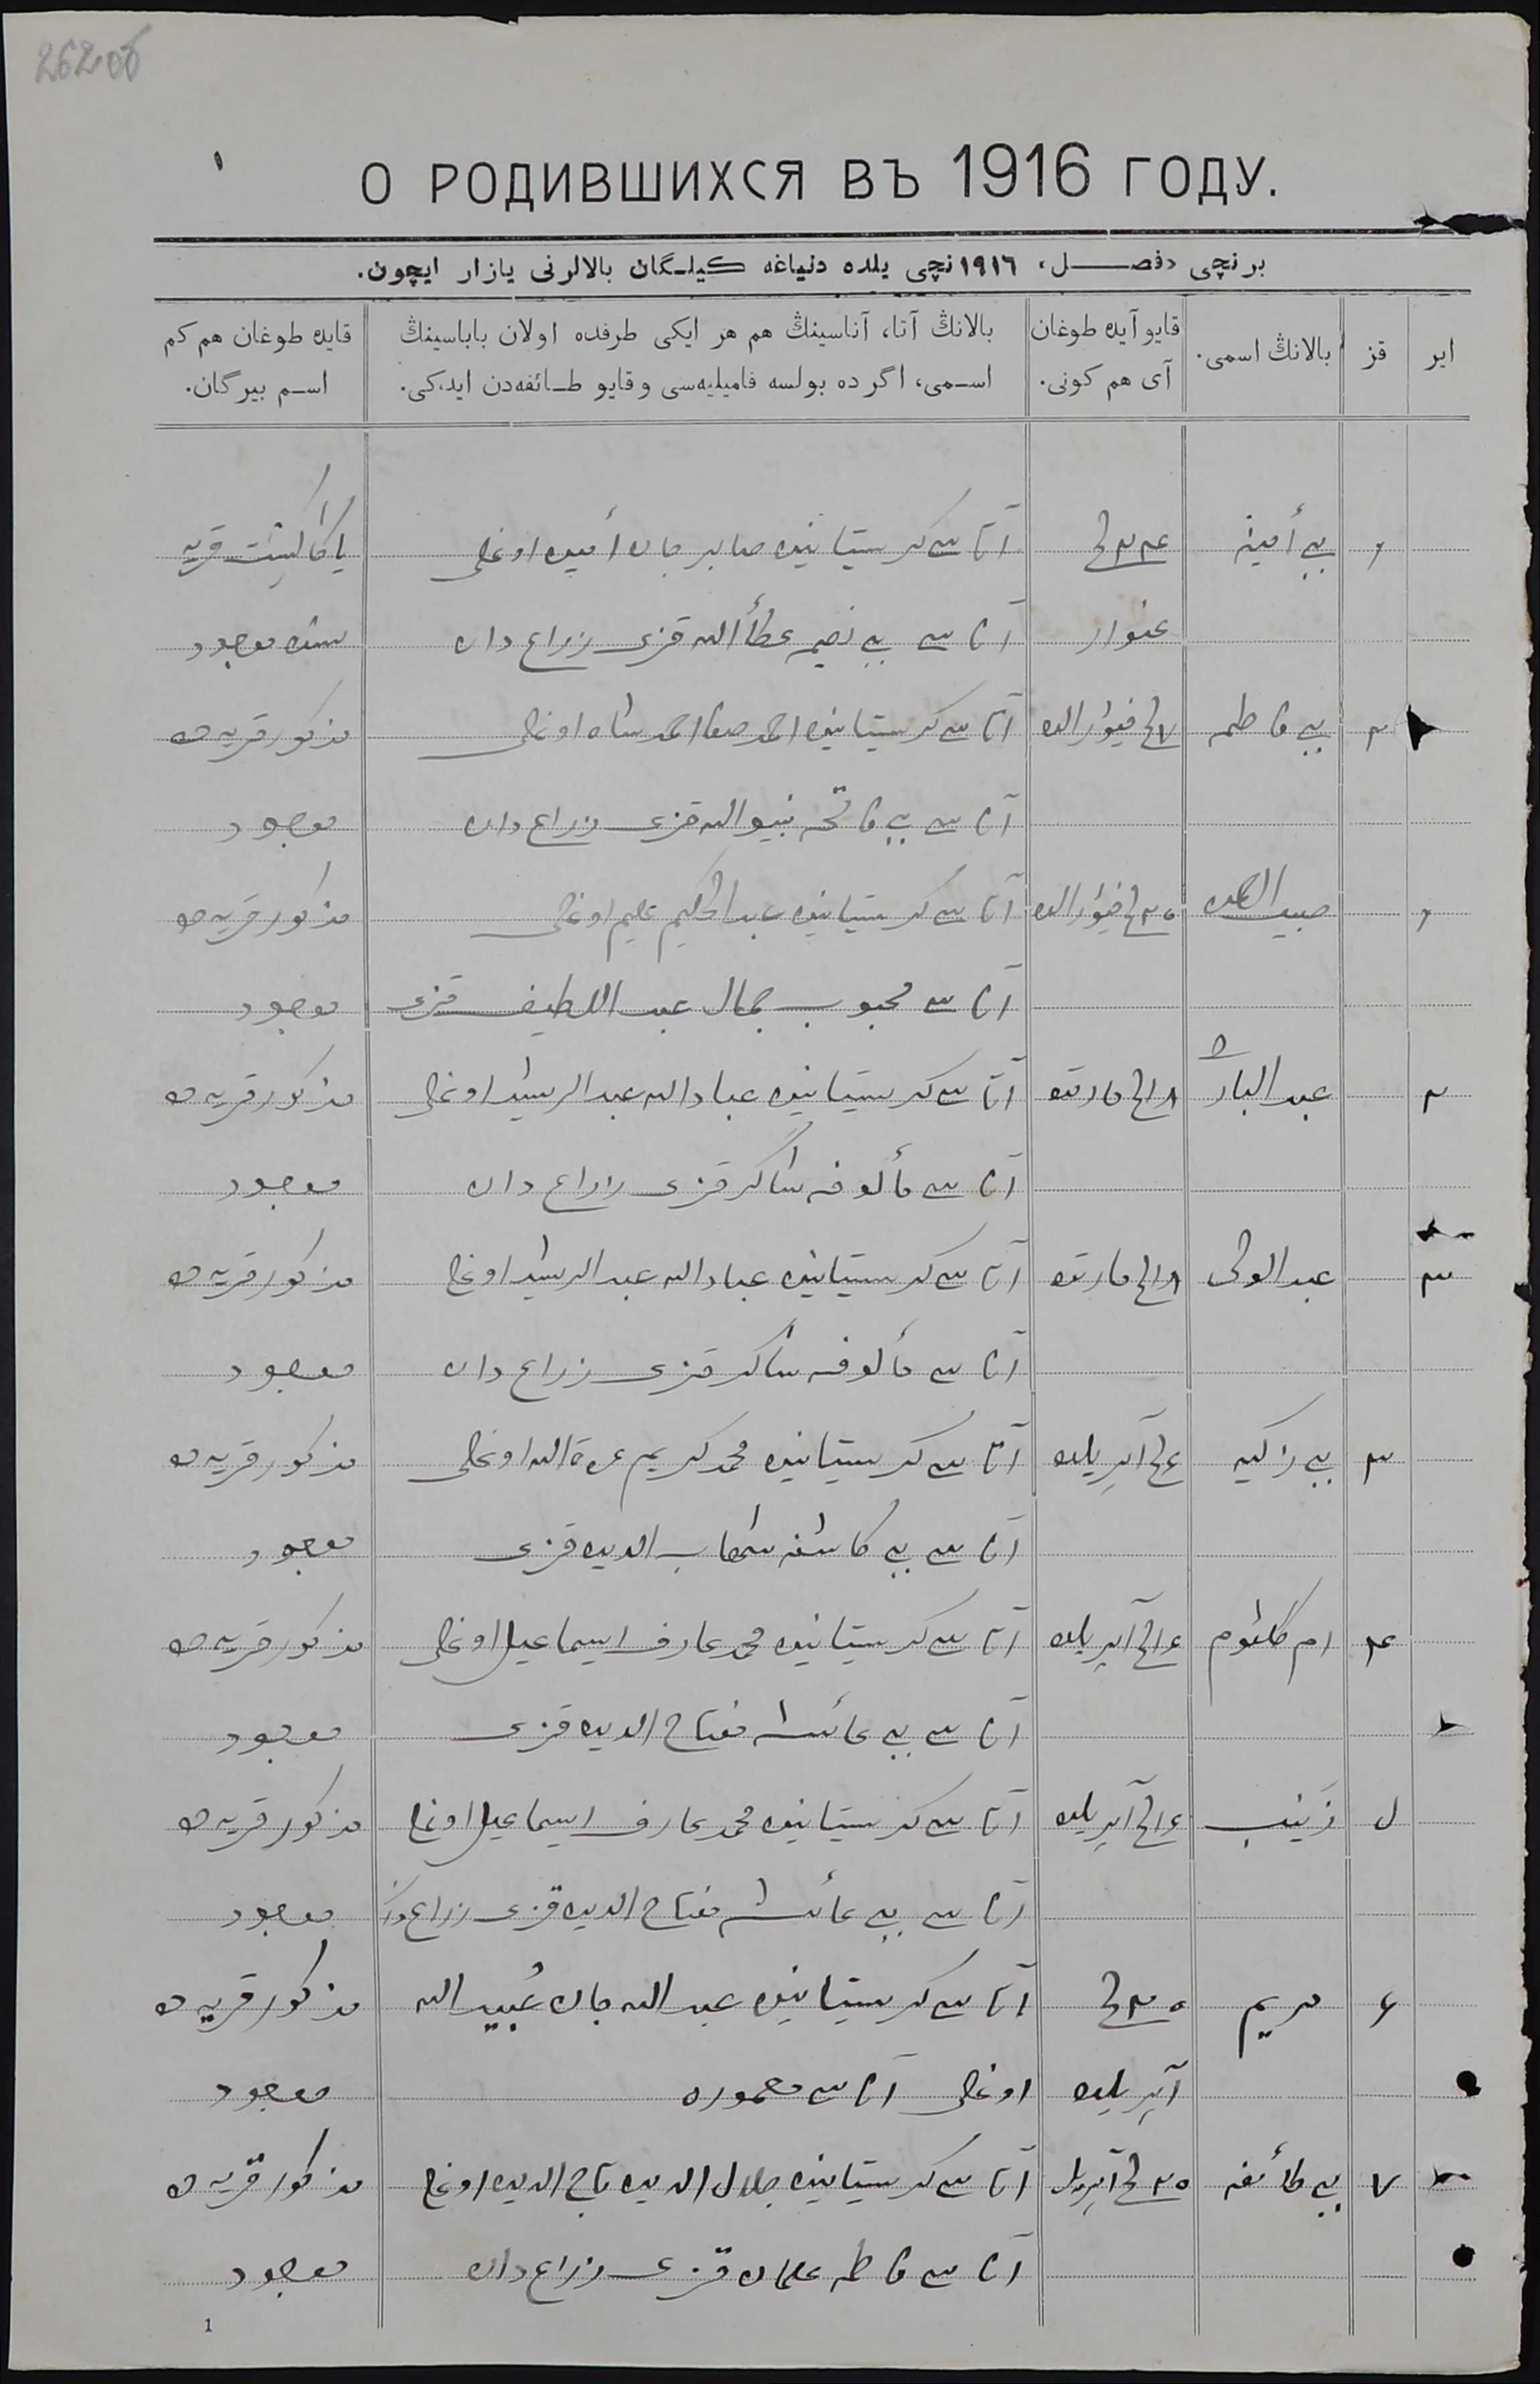 262об
О РОДИВШИХСЯ ВЪ 1916 ГОДУ.
برنچی «فصل» ١٩١٦ نچی یلده دنیاغه کیلگان بالالرنی یازار ایچون.
ایر
قز
بالانڭ اسمی.
قایو آیده طوغان
آی هم کونی.
بالانڭ آتا، آناسینڭ هم هر ایکی طرفده اولان باباسینڭ
اسمی، اگر ده بولسه فامیلیه‌سی و قایو طائفه‌دن ایدکی.
قایده طوغان هم کم
اسم بیرگان.
١ بی بی أمینه ٢٤ نچی آتاسی کرستیانین صابر جان أمین اوغلی قریه
غنوار آناسی بی بی نعیمه عطأ الله قزی زراع دان موجود
٢ بی بی فاطمه ٧ نچی فیورالده آتاسی کرستیانین احمد صفا احمد شاه اوغلی مذکور قریه ده
آناسی بی بی فاتحه قزی زراع دان موجود
١ ٢٥ نچی فیورالده آتاسی کرستیانین عبد الحکیم علیم اوغلی مذکور قریه ده
آناسی محبوب جمال عبد اللطیف قزی موجود
٢ عبد البار ١٨ نچی مارتده آتاسی کرستیانین عباد الله عبد الرشید اوغلی مذکور قریه ده
آناسی مألوفه شاکر قزی زراع دان موجود
٣ عبد الولی ١٨ نچی مارتده آتاسی کرستیانین عباد الله عبد الرشید اوغلی مذکور قریه ده
آناسی مألوفه شاکر قزی زراع دان موجود
٣ بی بی زاکیه ٤ نچی آپریلده آتاسی کرستیانین محمد کریم عزة الله اوغلی مذکور قریه ده
آناسی بی بی کاشفه شهاب الدین قزی موجود
٤ ام کلثوم ١٤ نچی آپریلده آتاسی کرستیانین محمد عارف اسماعیل اوغلی مذکور قریه ده
آناسی بی بی عائشه مفتاح الدین قزی موجود
زینب ١٤ نچی آپریلده آتاسی کرستیانین محمد عارف اسماعیل اوغلی مذکور قریه ده
آناسی بی بی عائشه مفتاح الدین قزی زراع دان موجود
٦ مریم ٢٥ نچی آتاسی کرستیانین عبد الله جان عبید الله مذکور قریه ده
آپریلده اوغلی آناسی معموره موجود
٧ بی بی طائفه ٢٥ نچی آپریل آتاسی کرستیانین جلال الدین تاج الدین اوغلی مذکور قریه ده
آناسی فاطمه قزی زراع دان موجود
1